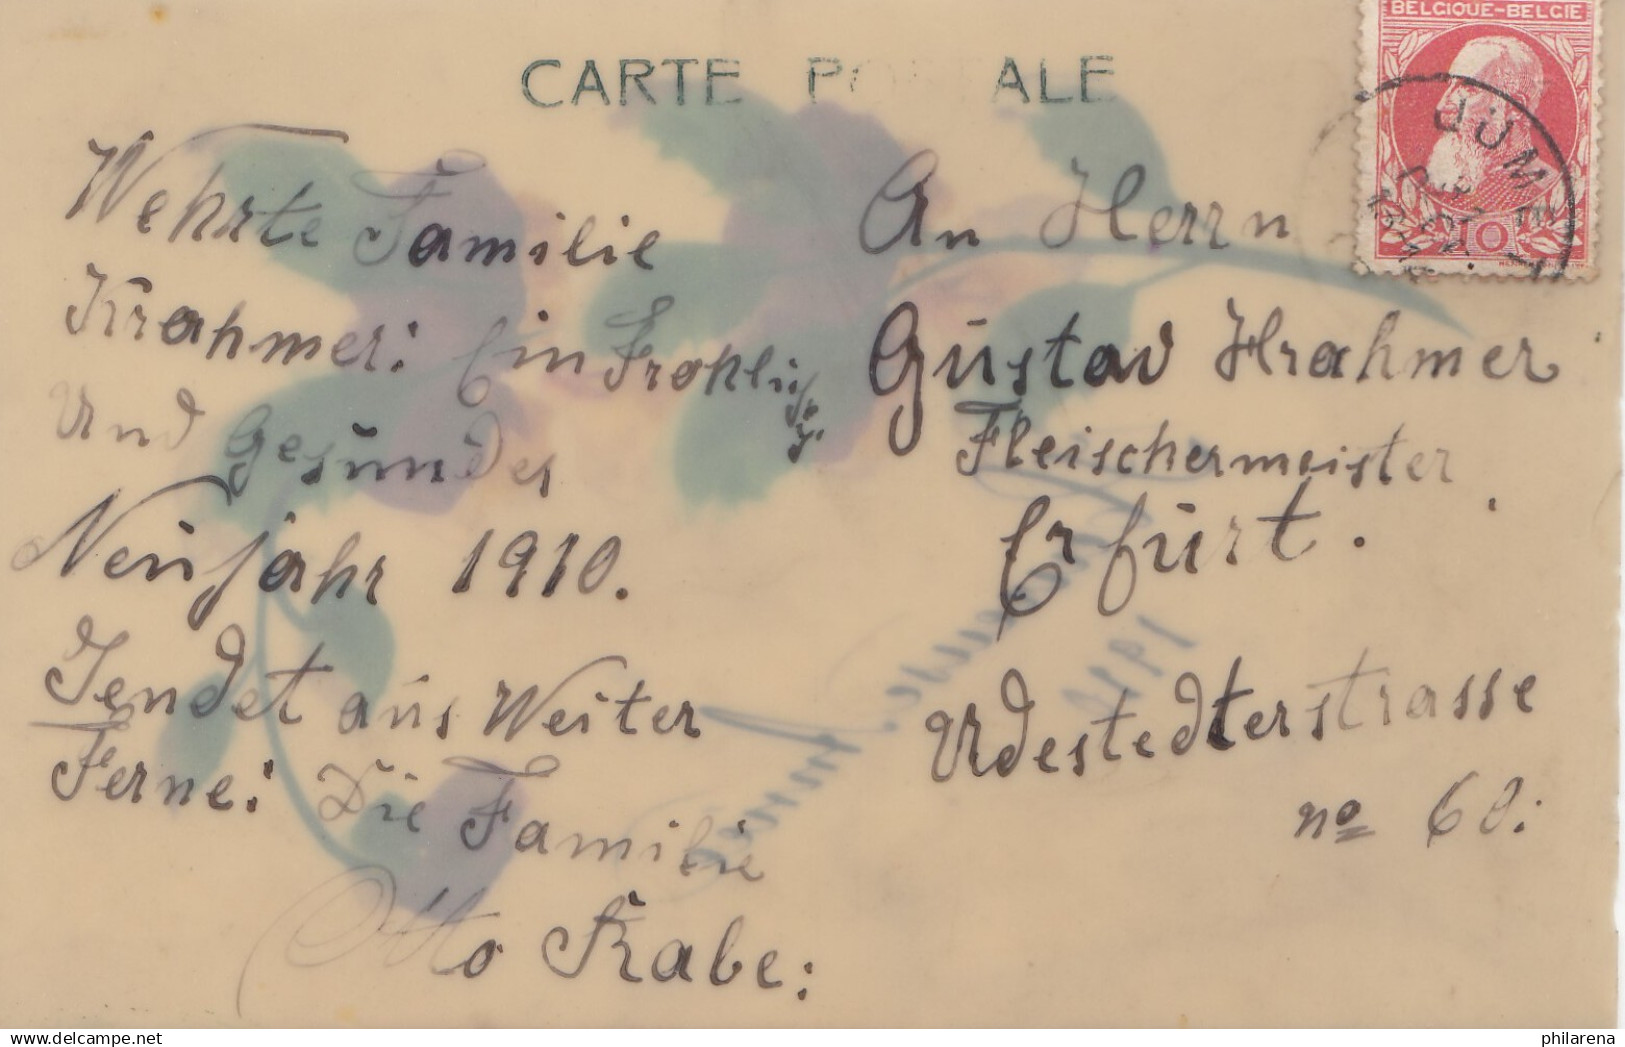 BELGIQUE-BELGIE
10
CARTE POSTALE
Wehrte Familie
Krahmer: Ein Frohlich
Und Gesundes
Neujahr 1910.
Sendet aus Weiter
Ferne: Die Familie
Otto Rabe:
An Herrn
Gustav Krahmer
Fleischermeister
Erfurt.
Urdestedterstrasse
no 60:
1910
philarena